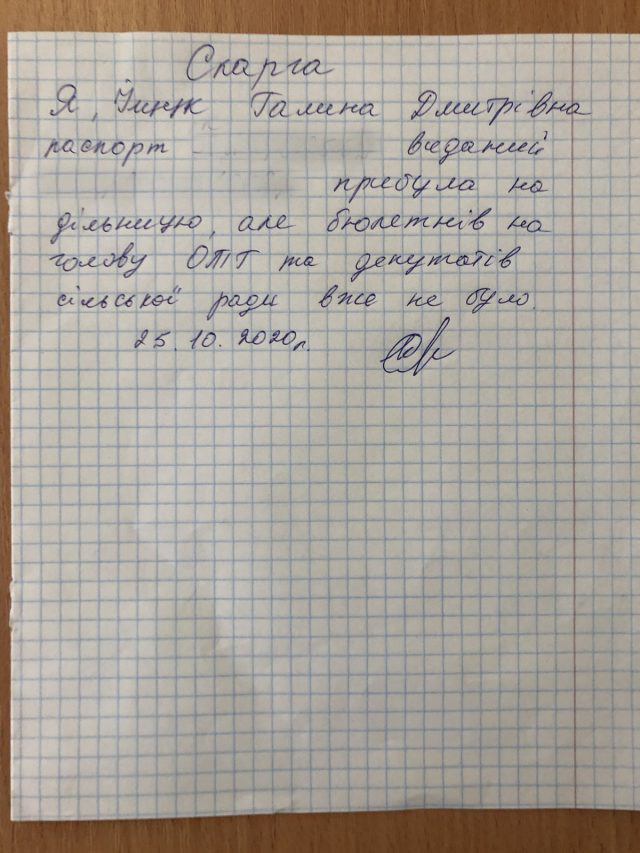 Скарга
Я, Галина Дмитрівна
паспорт виданий
прибула на
дільницю, але бюлетнів на
голову ОТГ та депутатів
сільської ради вже не було.
25.10.2020р.